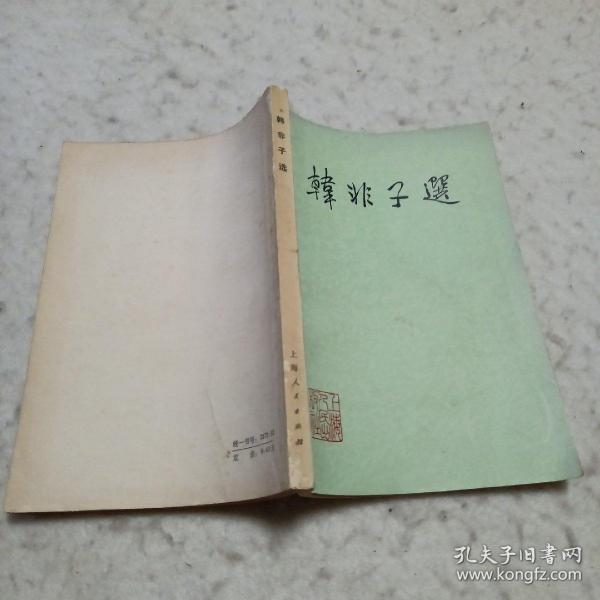 韓非子選
韩非子选
上海人民出版社
统一书号：
定价：
孔夫子旧书网
www.kongfz.com